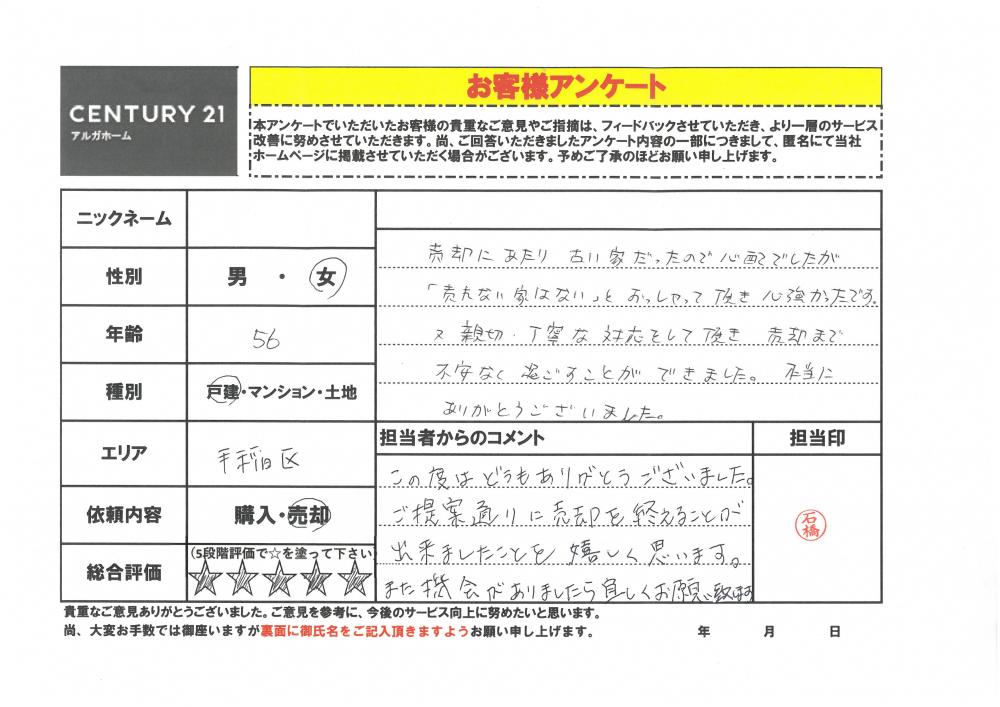 CENTURY 21
アルガホーム
お客様アンケート
本アンケートでいただいたお客様の貴重なご意見やご指摘は、フィードバックさせていただき、より一層のサービス
改善に努めさせていただきます。尚、ご回答いただきましたアンケート内容の一部につきまして、匿名にて当社
ホームページに掲載させていただく場合がございます。予めご了承のほどお願い申し上げます。
ニックネーム
性別
男 ・ 女
年齢
56
種別
戸建・マンション・土地
エリア
手稲区
依頼内容
購入・売却
総合評価
(5段階評価で☆を塗って下さい)
売却にあたり 古い家だったので心配でしたが
「売れない家はない」とおっしゃって頂き心強かったです。
又 親切・丁寧な対応をして頂き 売却まで
不安なく過ごすことができました。 本当に
ありがとうございました。
担当者からのコメント
担当印
この度はどうもありがとうございました。
ご提案通りに売却を終えることが
出来ましたことを嬉しく思います。
また機会がありましたら宜しくお願い致します
石橋
貴重なご意見ありがとうございました。ご意見を参考に、今後のサービス向上に努めたいと思います。
尚、大変お手数では御座いますが裏面に御氏名をご記入頂きますようお願い申し上げます。
年 月 日